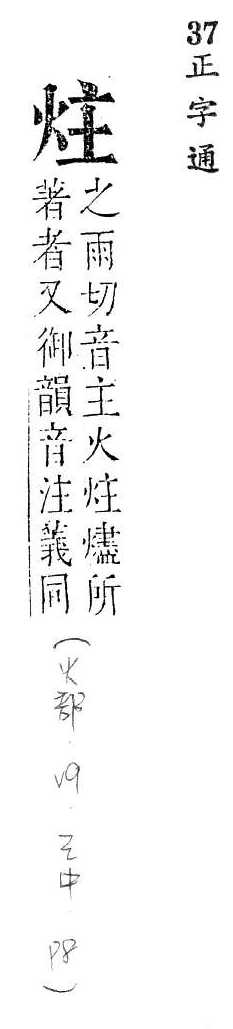 37正字通
炷
之雨切音主火炷燼所
著者又御韻音注義同
(火部.